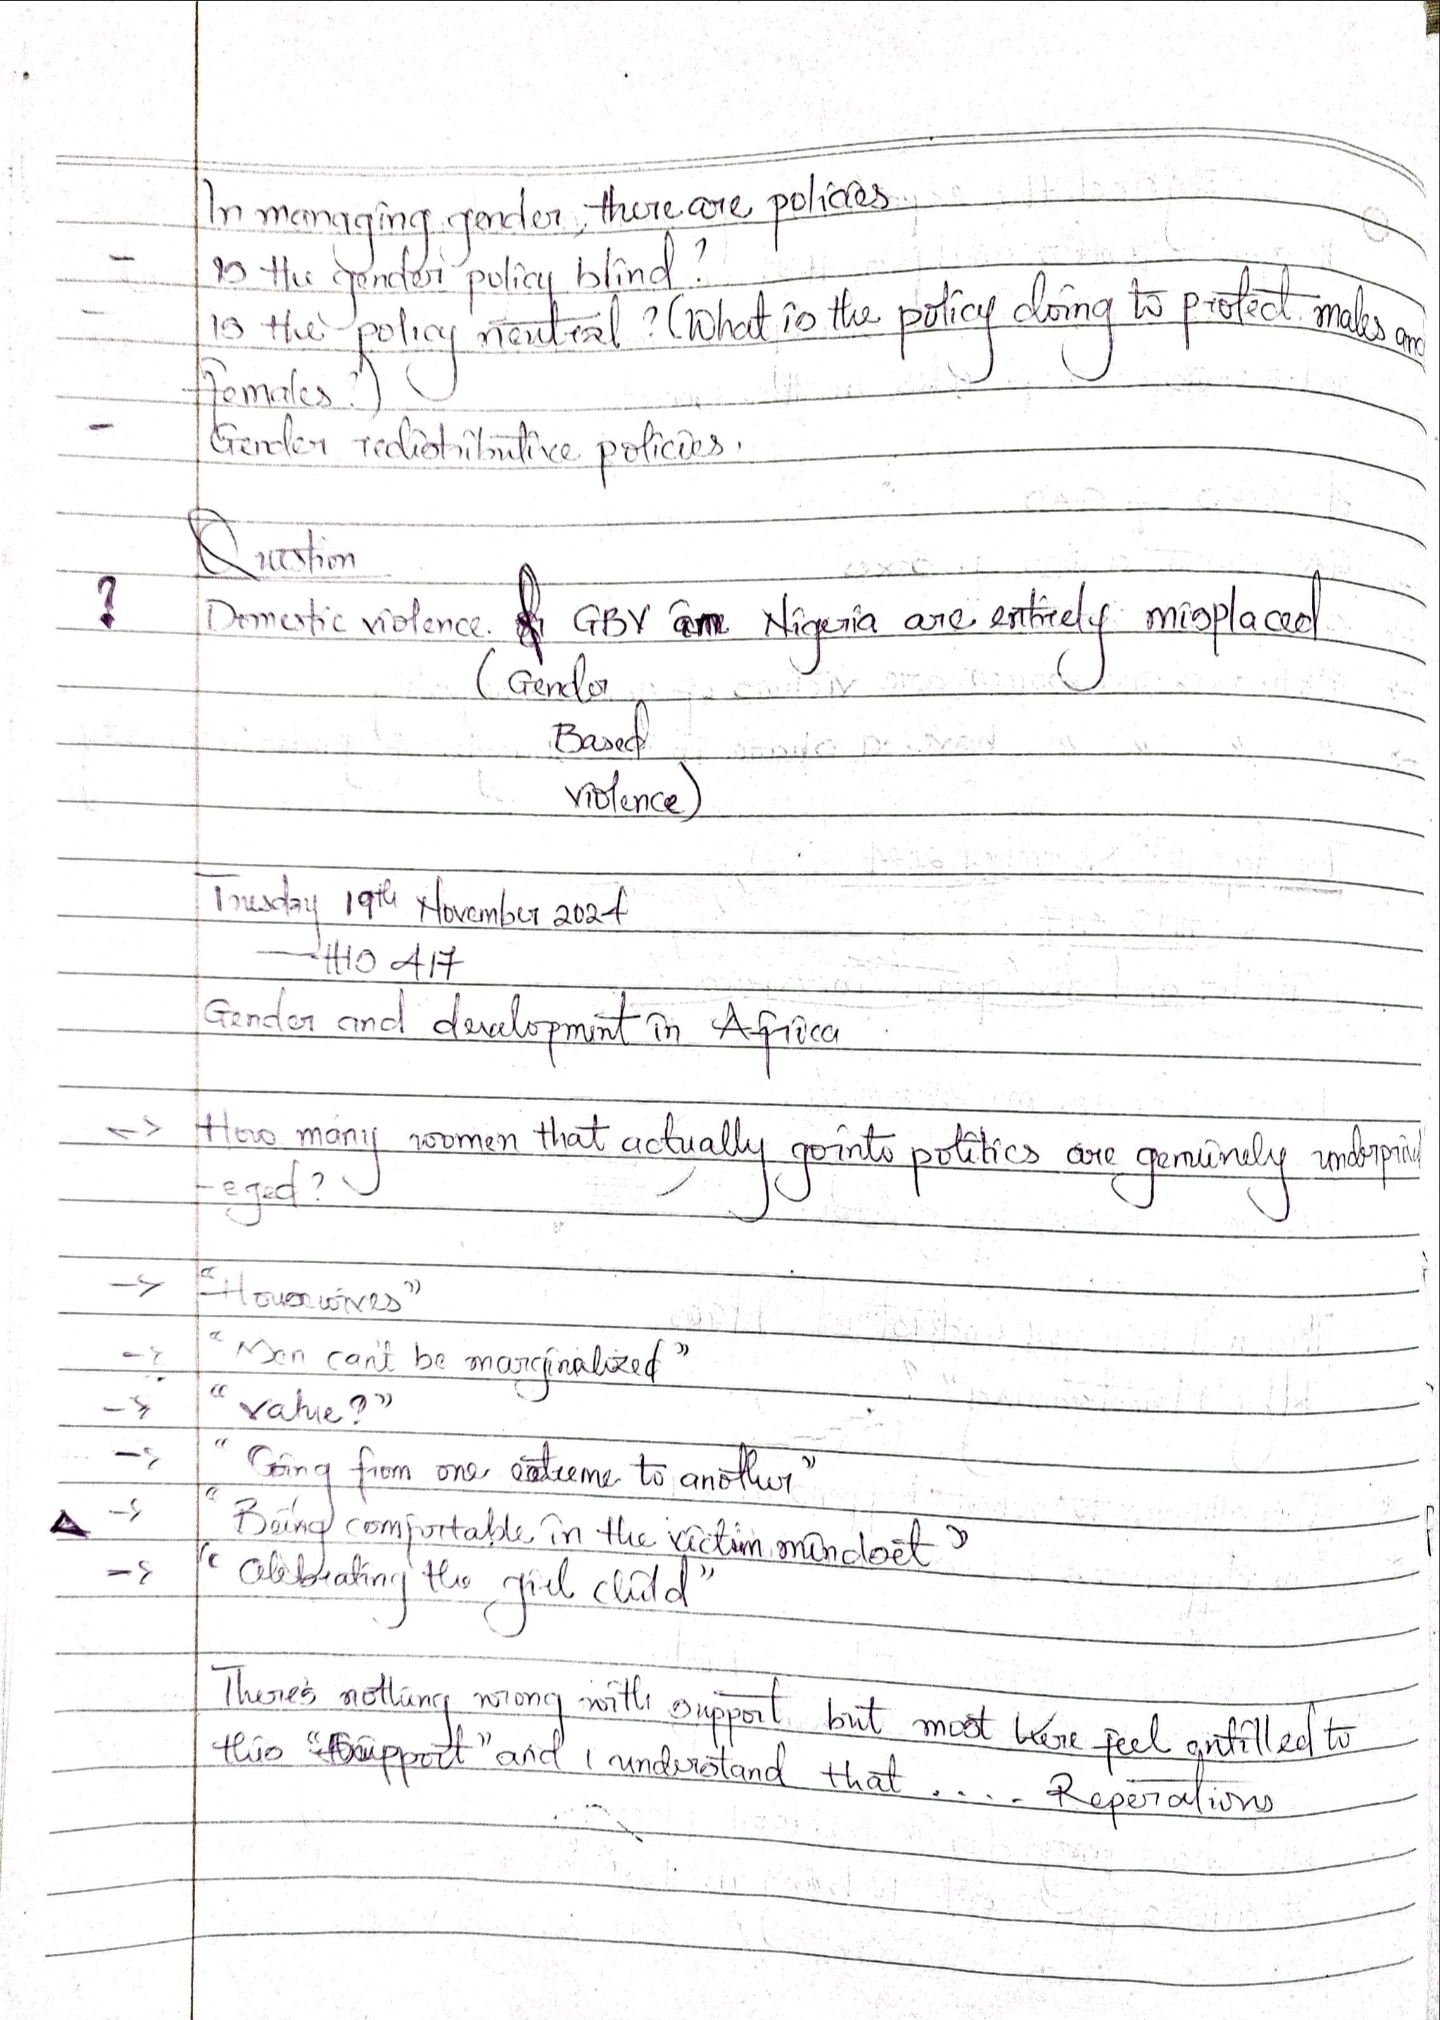 In managing gender, there are policies
- Is the gender policy blind?
- Is the policy neutral? (What is the policy doing to protect males and
females?)
- Gender redistributive policies.
Question
? Domestic violence & GBV in Nigeria are entirely misplaced
(Gender
Based
violence)
Tuesday 19th November 2024
— HIS 417
Gender and development in Africa
-> How many women that actually go into politics are genuinely underprivil
-eged?
-> "Housewives"
-> "Men can't be marginalized"
-> "value?"
-> "Going from one extreme to another"
-> "Being comfortable in the victim mindset"
-> "Celebrating the girl child"
There's nothing wrong with support but most here feel entitled to
this "support" and I understand that .... Reperations